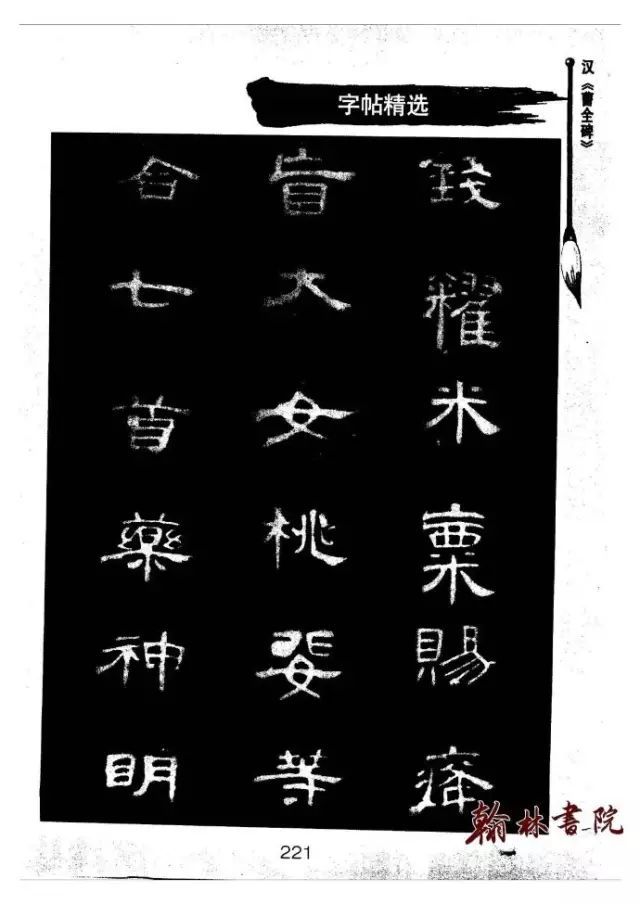 字帖精选
汉《曹全碑》
錢糴米粟賜癃
盲大女桃婓等
合七首藥神明
翰林書院
221